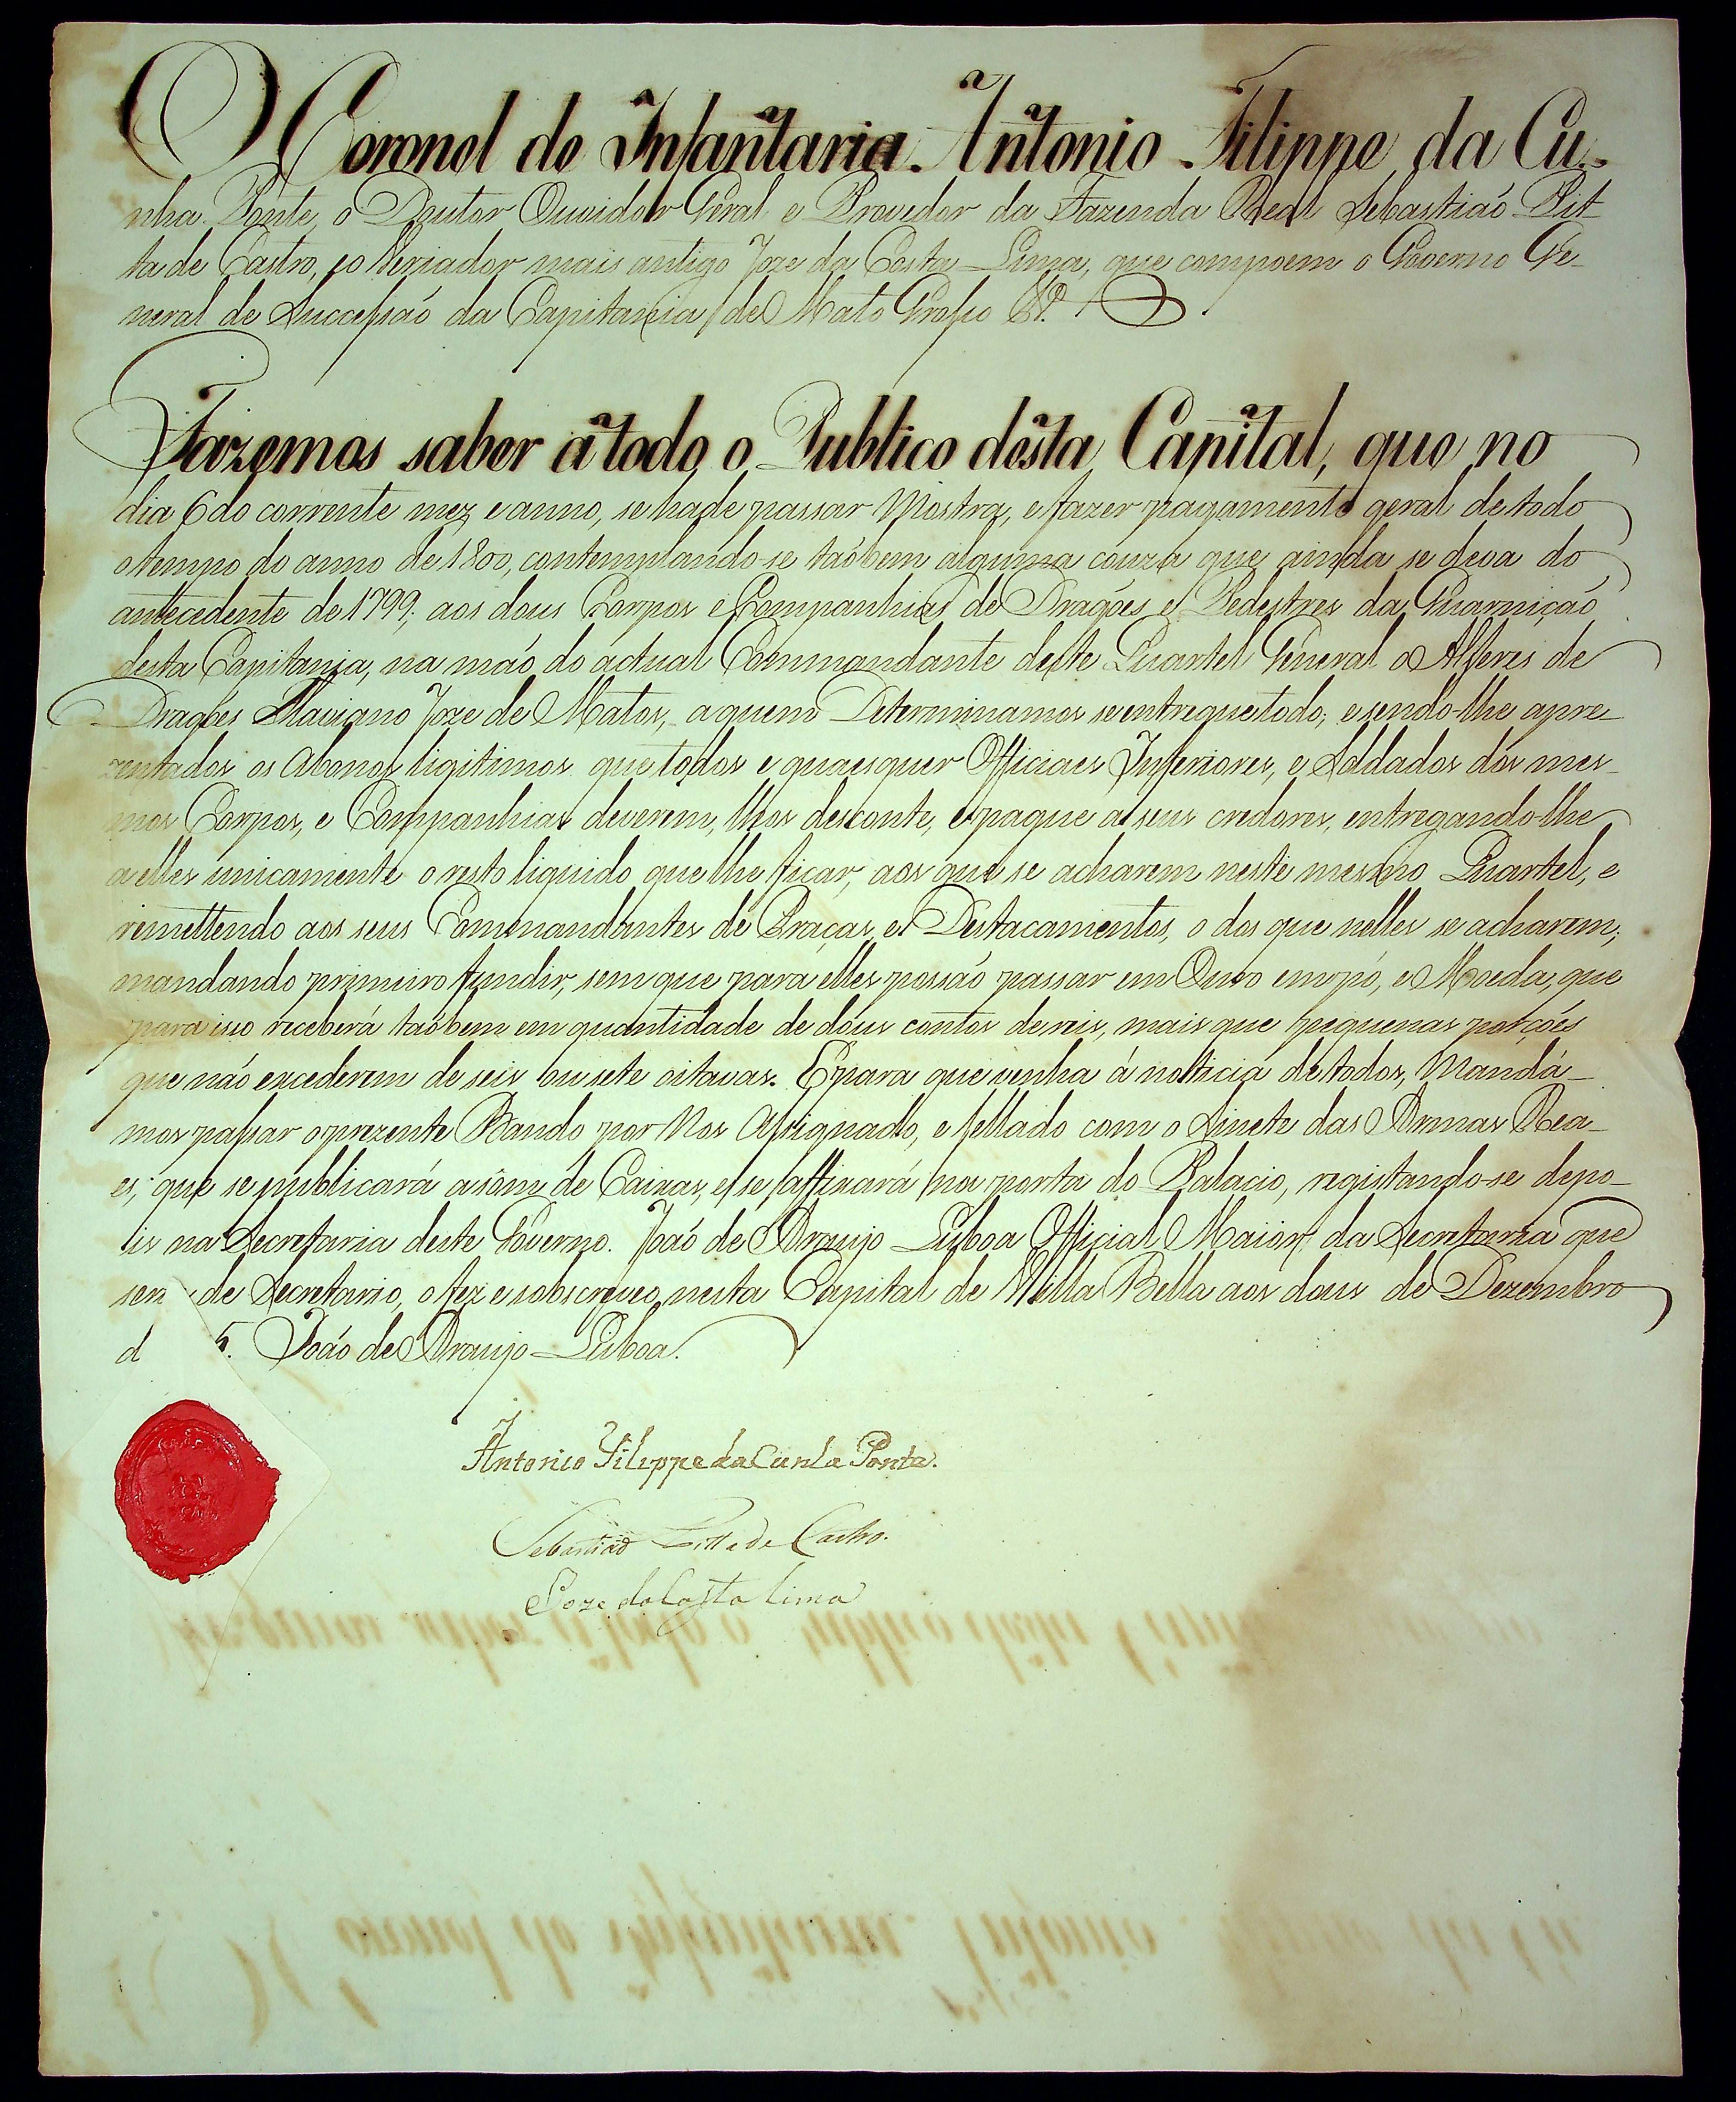 O Coronel de Infantaria Antonio Filippe da Cu-
nha Ponte, o Doutor Ouvidor Geral e Provedor da Fazenda Real Sebastiaõ Pit-
ta de Castro, e o Veriador mais antigo Joze da Costa Lima, que compoem o Governo Ge-
neral de Sucessaõ da Capitania de Mato Grosso &ª.
Fazemos saber a todo o Publico desta Capital, que no
dia 6 do corrente mez e anno, se hade passar Mostra, e fazer pagamento geral de todo
o tempo do anno de 1800, contemplando-se taõbem alguma couza que ainda se deva do
antecedente de 1799; aos dous Corpos e Companhias de Dragões e Pedestres da Guarniçaõ
desta Capitania, na maõ do actual Commandante deste Quartel General o Alferes de
Dragões Flaviano Joze de Matos, a quem Determinamos se entregue todo; e sendo-lhe apre-
zentados os Abonos ligitimos que todos e quaesquer Officiaes Inferiores, e Soldados dos mes-
mos Corpos, e Companhias deverem, lhos desconte, e pague a seus credores, entregando-lhe
a elles unicamente o resto liquido que lhe ficar, aos que se acharem neste mesmo Quartel, e
remettendo aos seus Commandantes de Praças, e Destacamentos, o dos que nelles se acharem;
mandando primeiro fundir, sem que para elles possaõ passar em Ouro em pó, e Moeda, que
para isso receberá taõbem em quantidade de dous contos de reis, mais que pequenas porções
que naõ excederem de seis ou sete oitavas. E para que venha á noticia de todos, Mandá-
mos passar o prezente Bando por Nos Assignado, e sellado com o Sinete das Armas Rea-
es, que se publicará a som de Caixas, e se affixará na porta do Palacio, registando-se depo-
is na Secretaria deste Governo. Joaõ de Araujo Lisboa Official Maior da Secretaria que
ser de Secretario, o fez e sobscreveo, nesta Capital de Villa Bella aos dous de Dezembro
d 5. Joaõ de Araujo Lisboa.
Antonio Filippe da Cunha Ponte.
Sebastiaõ Pitta de Castro.
Joze da Costa Lima